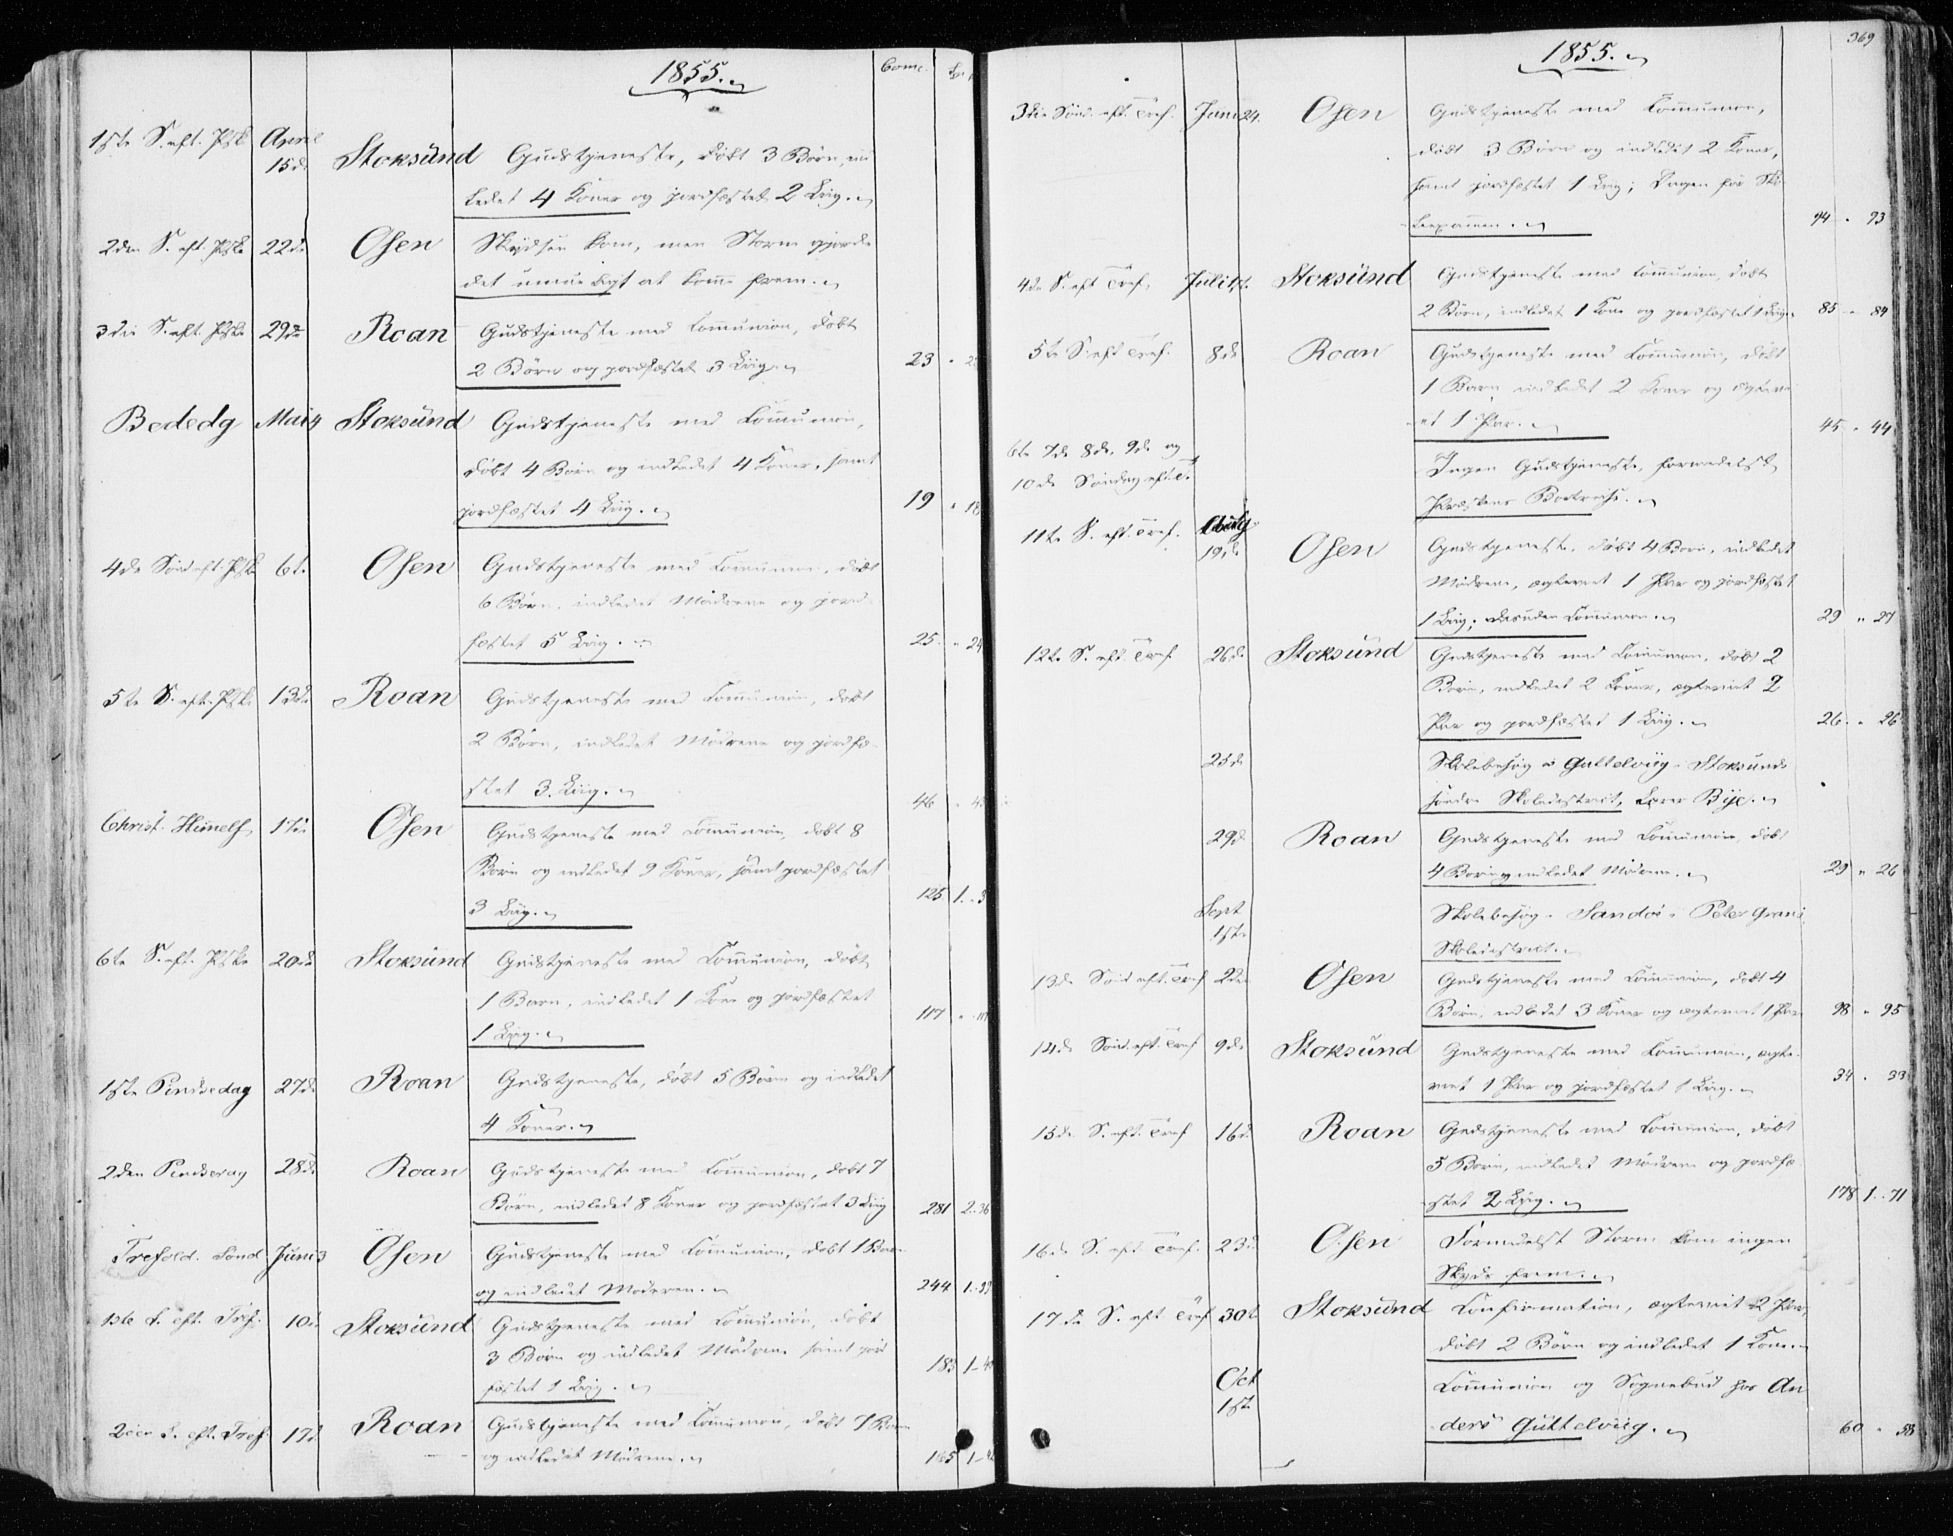 1855.
Come.
1ste S. eft. Pske April 15de Stoksünd Gudstjeneste, döbt 3 Börn, ind
ledet 4 Koner og jordfæstet 2 Liig.
2den S. eft. Pske 22de Osen Skydsen kom, men Storm gjorde
det umueligt at komme frem.
3die S. eft. Pske 29de Roan Gudstjeneste med Communion, döbt
2 Börn og jordfæstet 3 Liig. 23
Bededg Mai 4 Stoksünd Gudstjeneste med Communion,
döbt 4 Börn og indledet 4 Koner, samt
jordfæstet 4 Liig. 19 " 18
4de Sönd. eft. Pske 6te Osen Gudstjeneste med Communion, döbt
6 Börn, indledet Mödrene og jord
fæstet 5 Liig. 25 " 24
5te S. eft. Pske 13de Roan Gudstjeneste med Communion, döbt
2 Börn, indledet Mödrene og jordfæ-
stet 3 Liig. 46
Christ. Himmelf. 17de Osen Gudstjeneste med Communion, döbt 8
Börn og indledet 9 Koner, samt jordfæstet
3 Liig. 125
6te S. eft. Pske 20de Stoksünd Gudstjeneste med Communion, döbt
1 Barn, indledet 1 Kone og jordfæstet
1 Liig. 117
1ste Pindsedag 27de Roan Gudstjeneste, döbt 5 Börn og indledet
4 Koner.
2den Pindsedag 28de Roan Gudstjeneste med Communion, döbt 7
Börn, indledet 8 Koner og jordfæstet 3 Liig 281 2..36
Trefold. Sönd. Juni 3 Osen Gudstjeneste med Communion, döbt 1 Barn
og indledet Moderen. 244
1ste S. eft. Tref. 10de Stoksünd Gudstjeneste med Communion, döbt
3 Börn og indledet Mödrene samt jord
fæstet 1 Liig. 183
2den S. eft. Tref. 17de Roan Gudstjeneste med Communion, döbt 7 Börn
og indledet Mödrene. 165
369
1855.
3die Sönd. eft. Tref. Juni 24. Osen Gudstjeneste med Communion,
döbt 3 Börn og indledet 2 Koner,
samt jordfæstet 1 Liig; Dagen för Sko-
leexamen. 94 " 93
4de S. eft. Tref. Juli 1ste Stoksünd Gudstjeneste med Communion, döbt
2 Börn, indledet 1 Kone og jordfæstet 1 Liig. 85 " 84
5te S. eft. Tref. 8de Roan Gudstjeneste med Communion, döbt
1 Barn, indledet 2 Koner og ægtevi-
et 1 Par. 45 " 44
6te 7de 8de, 9de og
10de Söndag eft. T. Ingen Gudstjeneste, formedelst
Præstens Bortreise.
11te S. eft. Tref. 19de Osen Gudstjeneste, döbt 4 Börn, indledet
Mödrene, ægteviet 1 Par og jordfæstet
1 Liig; desuden Communion. 29 " 27
12te S. eft. Tref. 26de Stoksünd Gudstjeneste med Communion, döbt 2
Börn, indledet 2 Koner, ægteviet 2
Par og jordfæstet 1 Liig. 26 " 26
25de Skolebesög i Guttelviig i Stoksunds
söndre Skoledistrict, Lærer Bye.
29de Roan Gudstjeneste med Communion, döbt
4 Börn og indledet Mödrene. 29 " 26
Sept 1ste Skolebesög i Sandöe i Peter Grans
Skoledistrict.
13de Sönd. eft. Tref 2den Osen Gudstjeneste med Communion, döbt 4
Börn, indledet 3 Koner og ægteviet 1 Par 98 " 95
14de Sönd. eft. Tref 9de Stoksünd Gudstjeneste med Communion, ægte-
viet 1 Par og jordfæstet 1 Liig. 34 " 33
15de S. eft. Tref 16de Roan Gudstjeneste med Communion, döbt
5 Börn, indledet Mödrene og jordfæ
stet 2 Liig. 178 1..71
16de S. eft. Tref. 23de Osen Formedelst Storm kom ingen
Skyds frem.
17de S. eft. Tref 30te Stoksünd Confirmation, ægteviet 2 Par,
döbt 2 Börn og indledet 1 Kone.
Oct 1ste Communion og Sognebud hos An
ders Guttelviig. 60 " 58